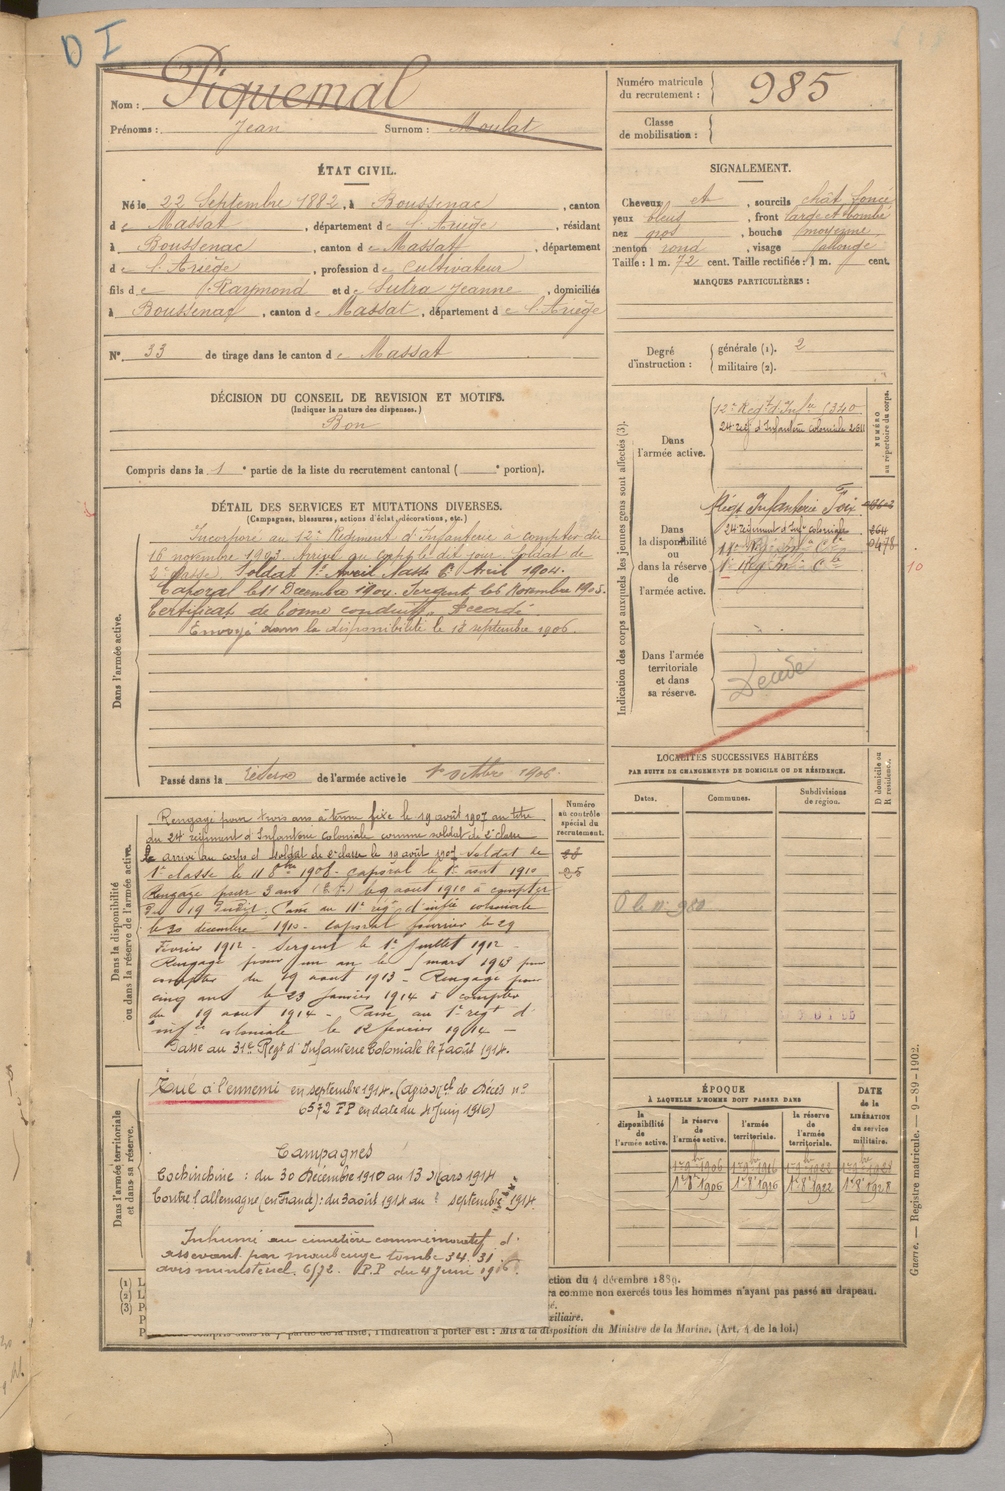 D I
Nom : Piquemal
Prénoms : Jean Surnom : Moulat
Numéro matricule
du recrutement : 985
Classe
de mobilisation :
ÉTAT CIVIL.
Né le 22 Septembre 1882, à Boussenac, canton
de Massat, département de l'Ariège, résidant
à Boussenac, canton de Massat, département
de l'Ariège, profession de Cultivateur
fils de Raymond et de Sutra Jeanne, domiciliés
à Boussenac, canton de Massat, département de l'Ariège
N° 33 de tirage dans le canton de Massat
SIGNALEMENT.
Cheveux et, sourcils chât foncé
yeux bleus, front large et bombé
nez gros, bouche moyenne,
menton rond, visage allongé
Taille : 1 m. 72 cent. Taille rectifiée : 1 m. cent.
MARQUES PARTICULIÈRES :
Degré
d'instruction :
générale (1). 2
militaire (2).
DÉCISION DU CONSEIL DE REVISION ET MOTIFS.
(Indiquer la nature des dispenses.)
Bon
Compris dans la 1e partie de la liste du recrutement cantonal ( e portion).
DÉTAIL DES SERVICES ET MUTATIONS DIVERSES.
(Campagnes, blessures, actions d'éclat, décorations, etc.)
Dans l'armée active.
Incorporé au 12e Régiment d'Infanterie à compter du
16 novembre 1903. Arrivé au corps le dit jour. Soldat de
2e classe. Soldat 1e 6 Avril 1904.
Caporal le 11 Décembre 1904. Sergent le 6 Novembre 1905.
Certificat de bonne conduite Accordé
Envoyé dans la disponibilité le 18 septembre 1906.
Passé dans la réserve de l'armée active le 1er octobre 1906.
Indication des corps auxquels les jeunes gens sont affectés (3).
NUMÉRO
au répertoire du corps.
Dans
l'armée active.
12e Régt d'Infie 1340
24 régt d'Infanterie coloniale
Dans
la disponibilité
ou
dans la réserve
de
l'armée active.
Régt Infanterie Foix
24 régiment d'Infie coloniale
10
Dans l'armée
territoriale
et dans
sa réserve.
Décédé
LOCALITÉS SUCCESSIVES HABITÉES
PAR SUITE DE CHANGEMENTS DE DOMICILE OU DE RÉSIDENCE.
Dates. Communes. Subdivisions
de région.
D domicile ou
R résidence.
Dans la disponibilité
ou dans la réserve de l'armée active.
Numéro
au contrôle
spécial du
recrutement.
Rengagé pour trois ans à terme fixe le 19 août 1907 au titre
du 24 régiment d'Infanterie coloniale comme soldat de 2e classe
arrivé au corps et soldat de 2e classe le 19 août 1907 soldat de
1e classe le 11 8bre 1908. caporal le 1er août 1910
Rengagé pour 3 ans le 9 août 1910 à compter
du 19 dudit. Passé au 11e régt d'infie coloniale
le 30 décembre 1910. caporal fourrier le 29
Février 1912 - Sergent le 1er Juillet 1912 -
Rengagé pour un an le mars 1913 pour
compter du 19 août 1913 - Rengagé pour
cinq ans le 23 janvier 1914 à compter
du 19 août 1914 - Passé au 1er régt d'
infie coloniale le 12 février 1914 -
Passe au 31e Régt d'Infanterie Coloniale le 7 août 1914.
Dans l'armée territoriale
et dans sa réserve.
Tué à l'ennemi en septembre 1914. (avis offel de décès n°
6572 PP en date du 4 Juin 1916)
Campagnes
Cochinchine : du 30 Décembre 1910 au 13 Mars 1914
Contre l'allemagne (en France) : du 3 août 1914 au ? septembre 1914
Inhumé au cimetière commémoratif d'
assevant par maubeuge tombe 34.31
avis ministériel. 6/72. P.P du 4 Juin 1916.
ÉPOQUE
À LAQUELLE L'HOMME DOIT PASSER DANS
la
disponibilité
de
l'armée active.
la réserve
de
l'armée active.
l'armée
territoriale.
la réserve
de
l'armée
territoriale.
DATE
de la
LIBÉRATION
du service
militaire.
1er 9bre 1906 1er 9bre 1916 1er 9bre 1922 1er 9bre 1928
1er 8bre 1906 1er 8bre 1916 1er 8bre 1922 1er 8bre 1928
(1)
(2)
(3)
ction du 4 décembre 1889.
ra comme non exercés tous les hommes n'ayant pas passé au drapeau.
xiliaire.
partie de la liste, l'indication à porter est : Mis à la disposition du Ministre de la Marine. (Art. 4 de la loi.)
Guerre. — Registre matricule. — 9-89-1902.